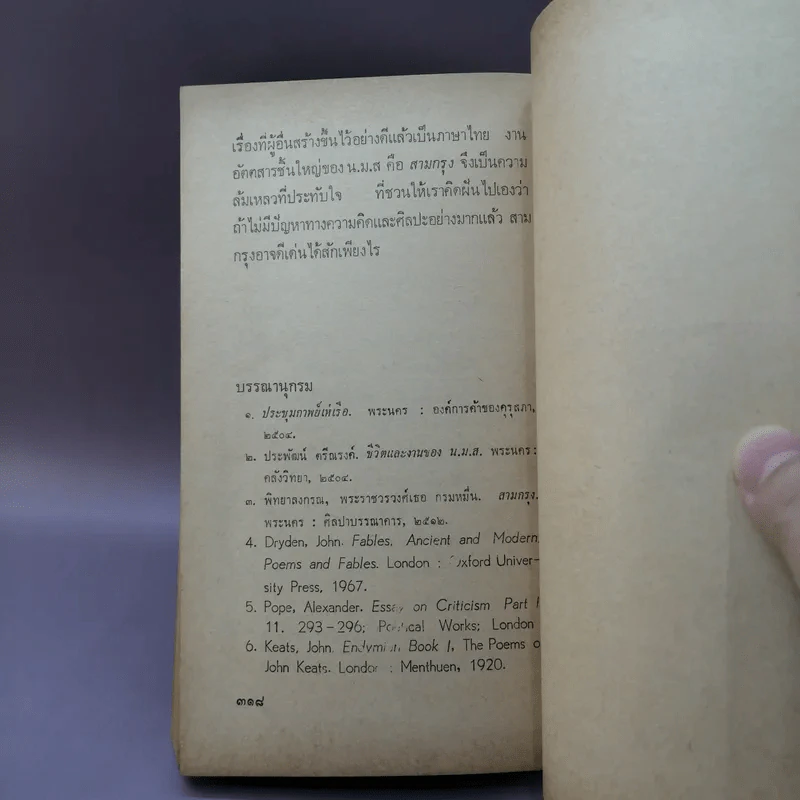 เรื่องที่ผู้อื่นสร้างขึ้นไว้อย่างดีแล้วเป็นภาษาไทย งาน
อัตตสารชิ้นใหญ่ของ น.ม.ส คือ สามกรุง จึงเป็นความ
ล้มเหลวที่ประทับใจ ที่ชวนให้เราคิดฝันไปเองว่า
ถ้าไม่มีปัญหาทางความคิดและศิลปะอย่างมากแล้ว สาม
กรุงอาจดีเด่นได้สักเพียงไร
บรรณานุกรม
๑. ประชุมกาพย์เห่เรือ. พระนคร : องค์การค้าของคุรุสภา,
๒๕๐๔.
๒. ประพัฒน์ ตรีณรงค์. ชีวิตและงานของ น.ม.ส. พระนคร:
คลังวิทยา, ๒๕๐๔.
๓. พิทยาลงกรณ, พระราชวรวงศ์เธอ กรมหมื่น. สามกรุง.
พระนคร : ศิลปาบรรณาคาร, ๒๕๑๒.
4. Dryden, John. Fables, Ancient and Modern,
Poems and Fables. London : Oxford Univer-
sity Press, 1967.
5. Pope, Alexander. Essay on Criticism Part
11. 293-296; Poetical Works; London
6. Keats, John. Endymion, Book I, The Poems
John Keats. London : Menthuen, 1920.
๓๑๘